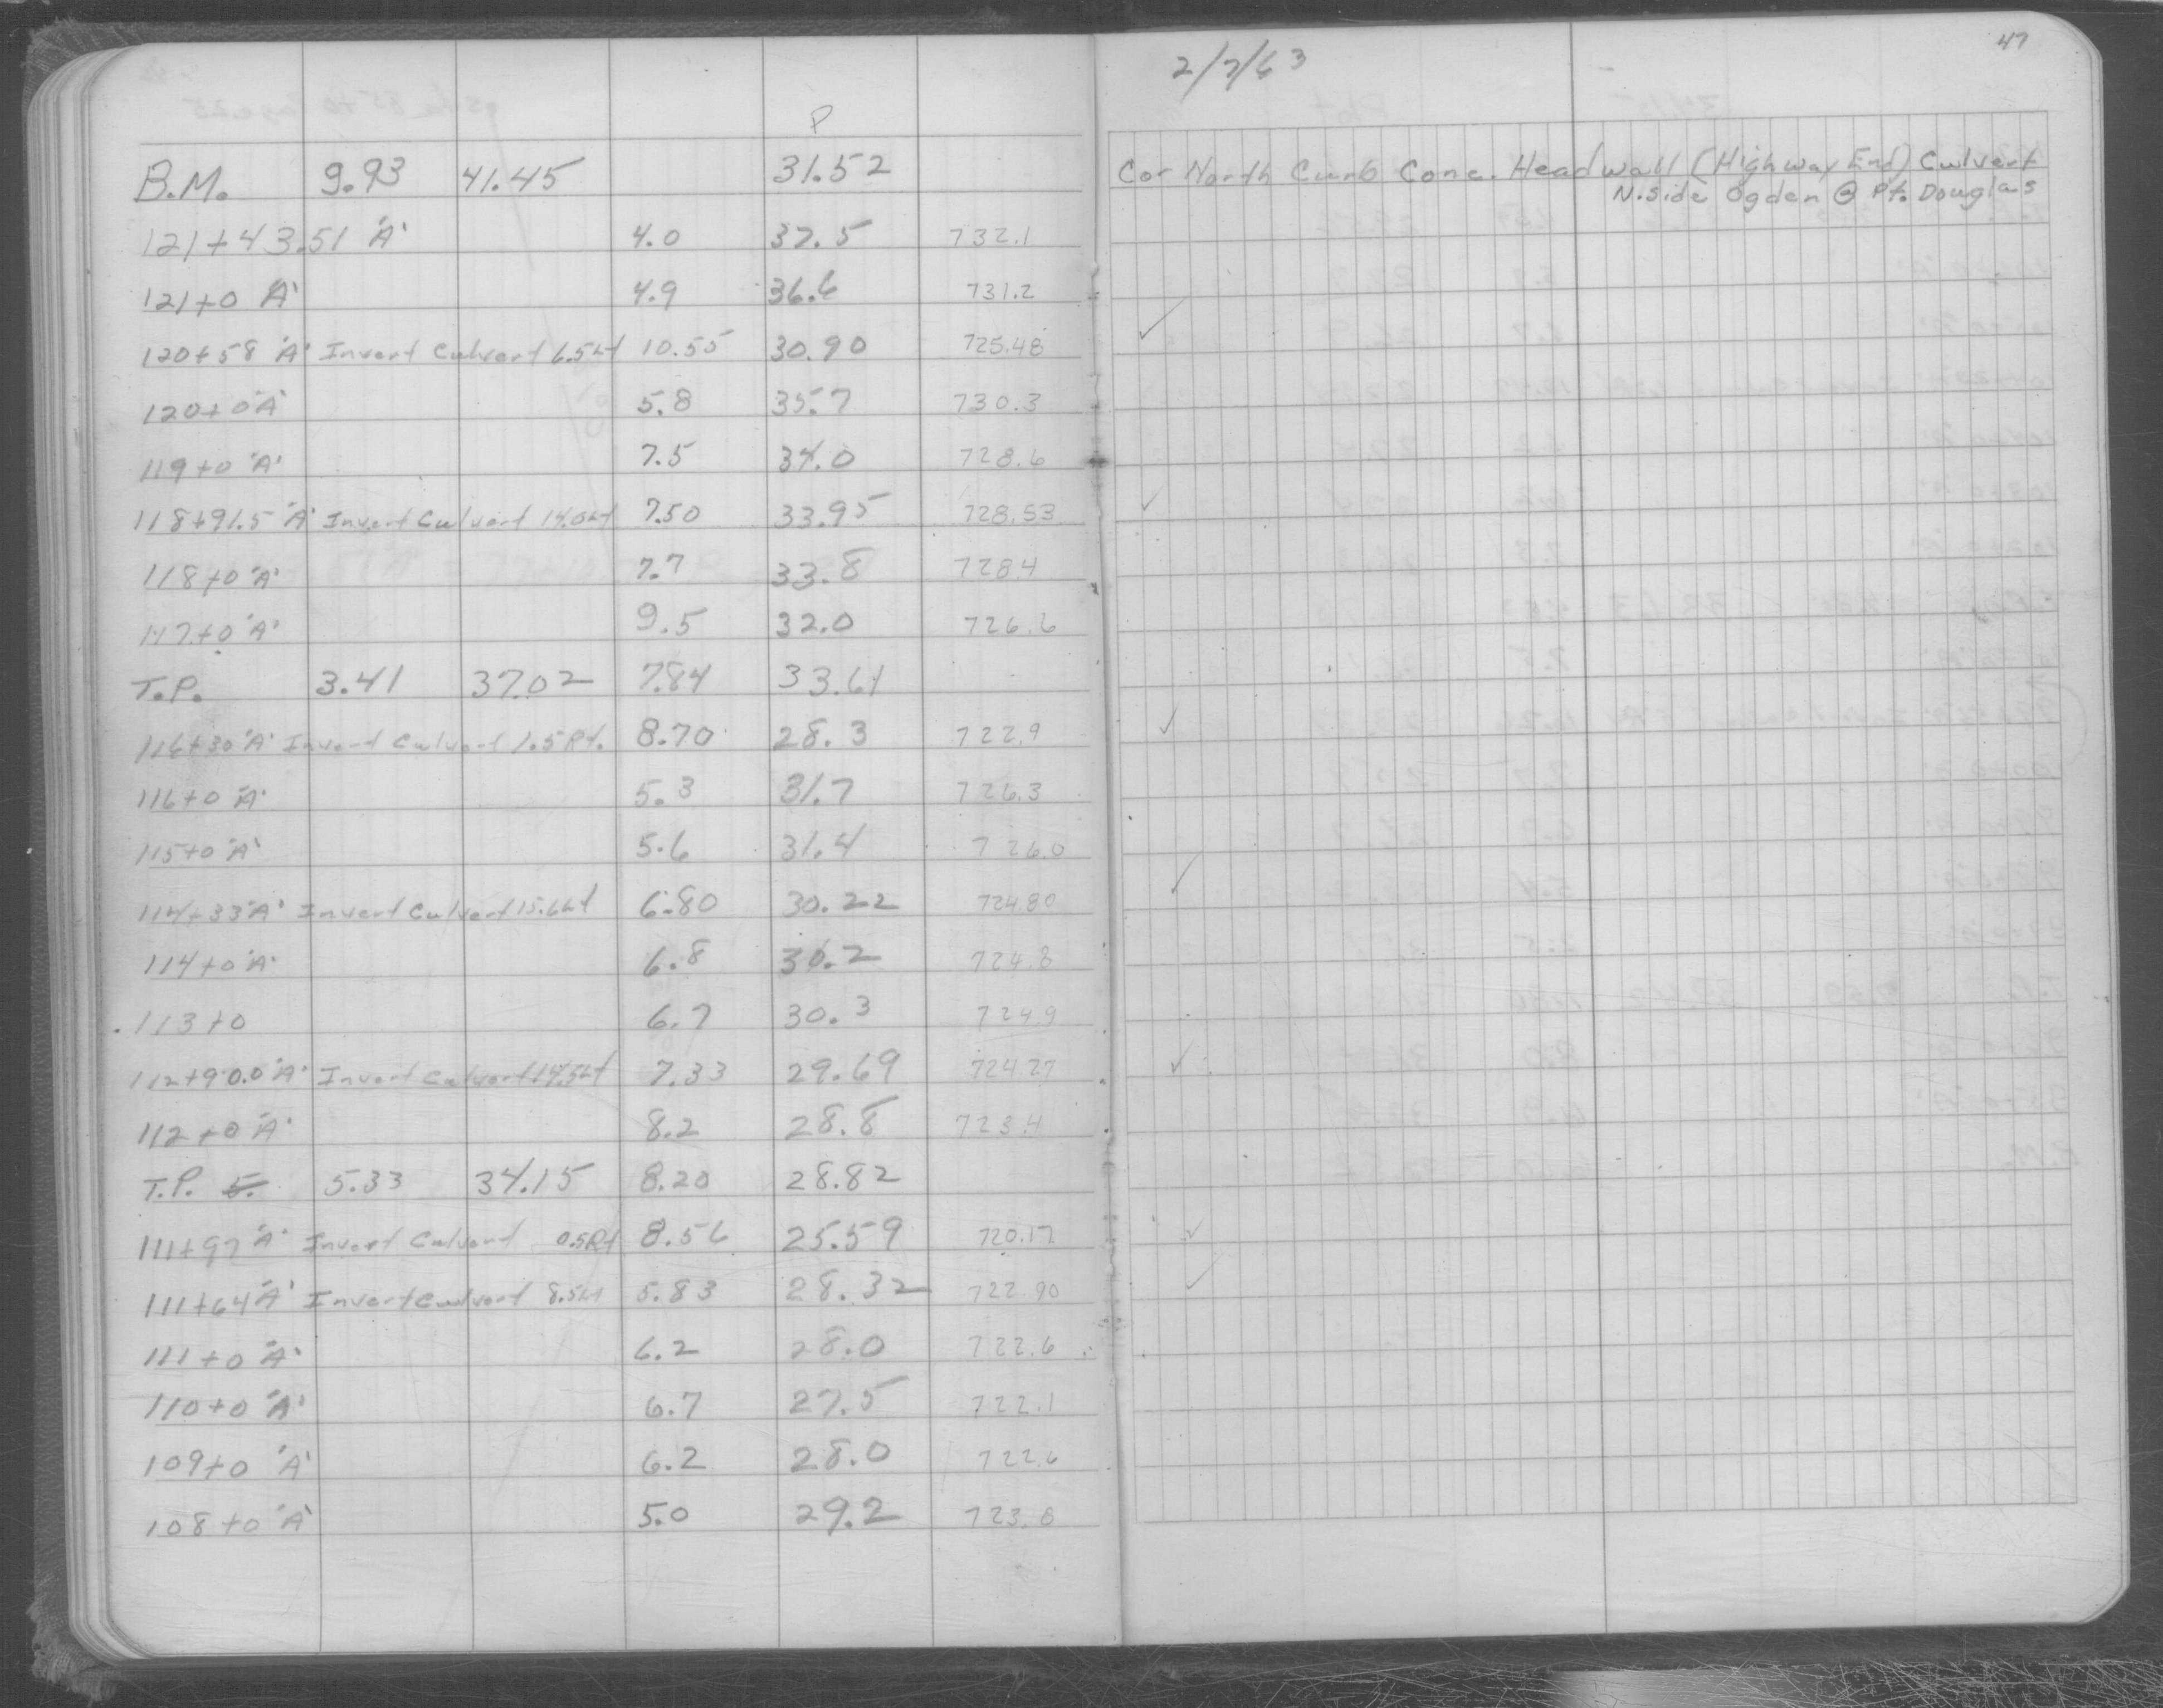 2/7/63
47
P
B.M. 9.93 41.45 31.52 Cor North Curb Conc. Headwall (Highway End) Culvert
N. Side Ogden @ Pt. Douglas
121+43.51 "A" 4.0 37.5 732.1
121+0 "A" 4.9 36.6 731.2
120+58 "A" Invert Culvert 6.5 Lt 10.55 30.90 725.48 ✓
120+0 "A" 5.8 35.7 730.3
119+0 "A" 7.5 34.0 728.6
118+91.5 "A" Invert Culvert 14.0 Lt 7.50 33.95 728.53 ✓
118+0 "A" 7.7 33.8 728.4
117+0 "A" 9.5 32.0 726.6
T.P. 3.41 37.02 7.84 33.61
116+30 "A" Invert Culvert 1.5 Rt. 8.70 28.3 722.9 ✓
116+0 "A" 5.3 31.7 726.3
115+0 "A" 5.6 31.4 726.0
114+33 "A" Invert Culvert 15.6 Lt 6.80 30.22 724.80 ✓
114+0 "A" 6.8 30.2 724.8
113+0 6.7 30.3 724.9
112+90.0 "A" Invert Culvert 14.5 Lt 7.33 29.69 724.27 ✓
112+0 "A" 8.2 28.8 723.4
T.P. 5.33 34.15 8.20 28.82
111+97 "A" Invert Culvert 0.5 Rt 8.56 25.59 720.17 ✓
111+64 "A" Invert Culvert 8.5 Lt 5.83 28.32 722.90 ✓
111+0 "A" 6.2 28.0 722.6
110+0 "A" 6.7 27.5 722.1
109+0 "A" 6.2 28.0 722.6
108+0 "A" 5.0 29.2 723.8